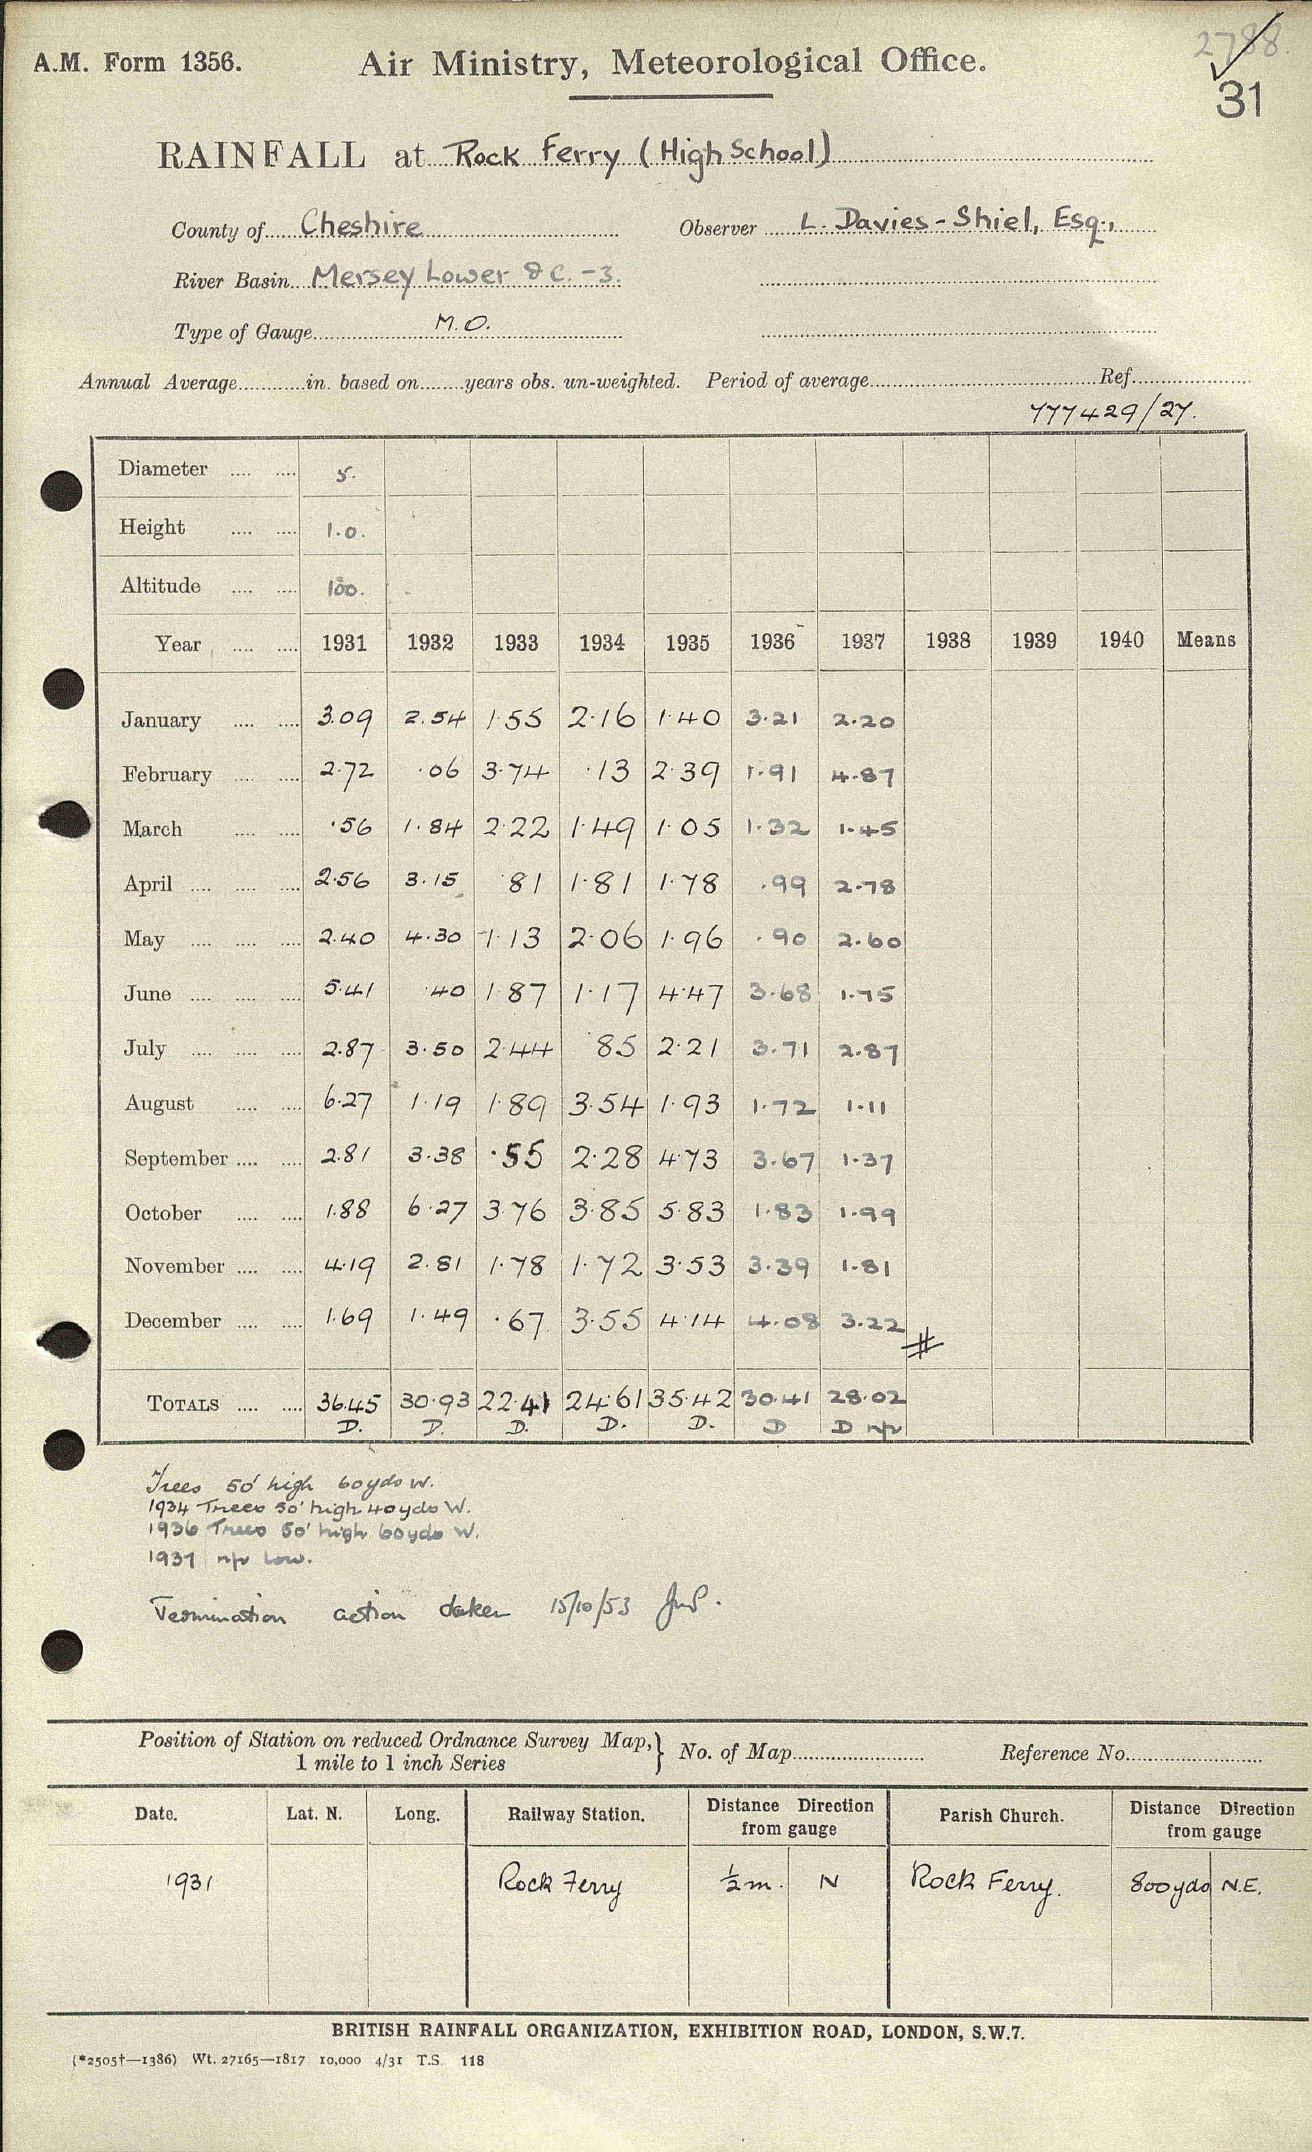 2788.
A.M. Form 1356.
Air Ministry, Meteorological Office.
31
RAINFALL at Rock Ferry (High School)
County of Cheshire Observer L. Davies-Shiel, Esq.,
River Basin Mersey Lower &c. -3.
Type of Gauge M.O.
Annual Average in. based on years obs. un-weighted. Period of average Ref.
777429/27.
Diameter 5.
Height 1.0.
Altitude 100.
Year 1931 1932 1933 1934 1935 1936 1937 1938 1939 1940 Means
January 3.09 2.54 1.55 2.16 1.40 3.21 2.20
February 2.72 .06 3.74 .13 2.39 1.91 4.87
March .56 1.84 2.22 1.49 1.05 1.32 1.45
April 2.56 3.15 .81 1.81 1.78 .99 2.78
May 2.40 4.30 1.13 2.06 1.96 .90 2.60
June 5.41 .40 1.87 1.17 4.47 3.68 1.75
July 2.87 3.50 2.44 .85 2.21 3.71 2.87
August 6.27 1.19 1.89 3.54 1.93 1.72 1.11
September 2.81 3.38 .55 2.28 4.73 3.67 1.37
October 1.88 6.27 3.76 3.85 5.83 1.83 1.99
November 4.19 2.81 1.78 1.72 3.53 3.39 1.81
December 1.69 1.49 .67 3.55 4.14 4.08 3.22 #
TOTALS 36.45 30.93 22.41 24.61 35.42 30.41 28.02
D. D. D. D. D. D D n/r
Trees 50' high 60yds W.
1934 Trees 50' high 40yds W.
1936 Trees 50' high 60yds W.
1937 n/r low.
Termination action taken 15/10/53
Position of Station on reduced Ordnance Survey Map, 1 mile to 1 inch Series } No. of Map Reference No.
Date. Lat. N. Long. Railway Station. Distance Direction from gauge Parish Church. Distance Direction from gauge
1931 Rock Ferry ½m. N Rock Ferry. 800yds N.E.
BRITISH RAINFALL ORGANIZATION, EXHIBITION ROAD, LONDON, S.W.7.
(*2505†—1386) Wt. 27165—1817 10,000 4/31 T.S. 118